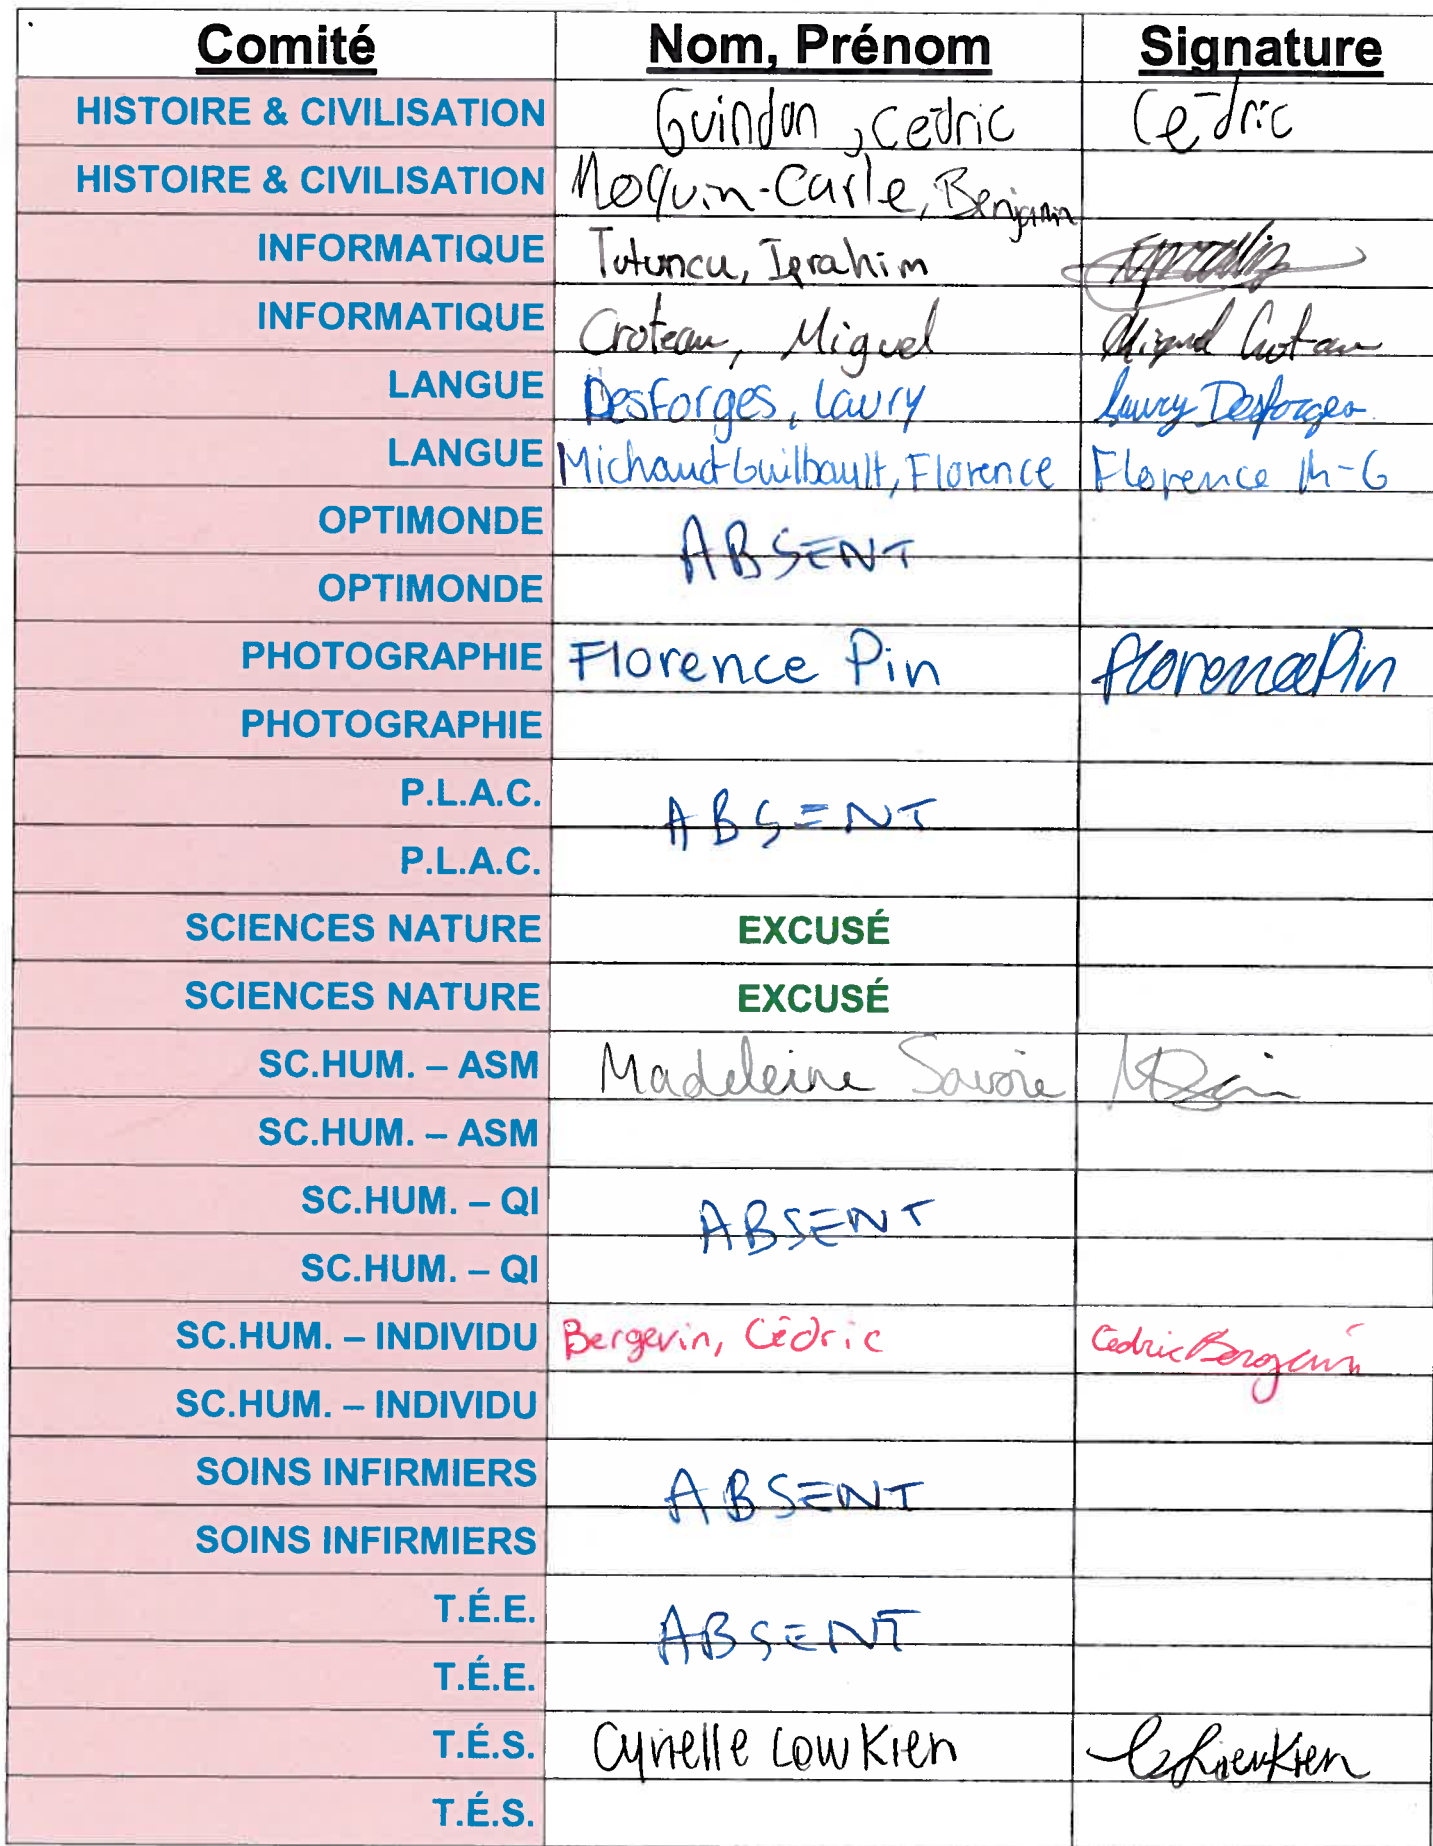 Comité Nom, Prénom Signature
HISTOIRE & CIVILISATION Guindon, Cédric Cédric
HISTOIRE & CIVILISATION Moquin-Carle, Benjamin
INFORMATIQUE Tutuncu, Igrahim
INFORMATIQUE Croteau, Miguel Miguel Croteau
LANGUE Desforges, Laury Laury Desforges
LANGUE Michaud-Guilbault, Florence Florence M-G
OPTIMONDE ABSENT
OPTIMONDE
PHOTOGRAPHIE Florence Pin Florence Pin
PHOTOGRAPHIE
P.L.A.C. ABSENT
P.L.A.C.
SCIENCES NATURE EXCUSÉ
SCIENCES NATURE EXCUSÉ
SC.HUM. – ASM Madeleine Savoie
SC.HUM. – ASM
SC.HUM. – QI ABSENT
SC.HUM. – QI
SC.HUM. – INDIVIDU Bergevin, Cédric Cédric Bergevin
SC.HUM. – INDIVIDU
SOINS INFIRMIERS ABSENT
SOINS INFIRMIERS
T.É.E. ABSENT
T.É.E.
T.É.S. Cyrielle Low Kien
T.É.S.